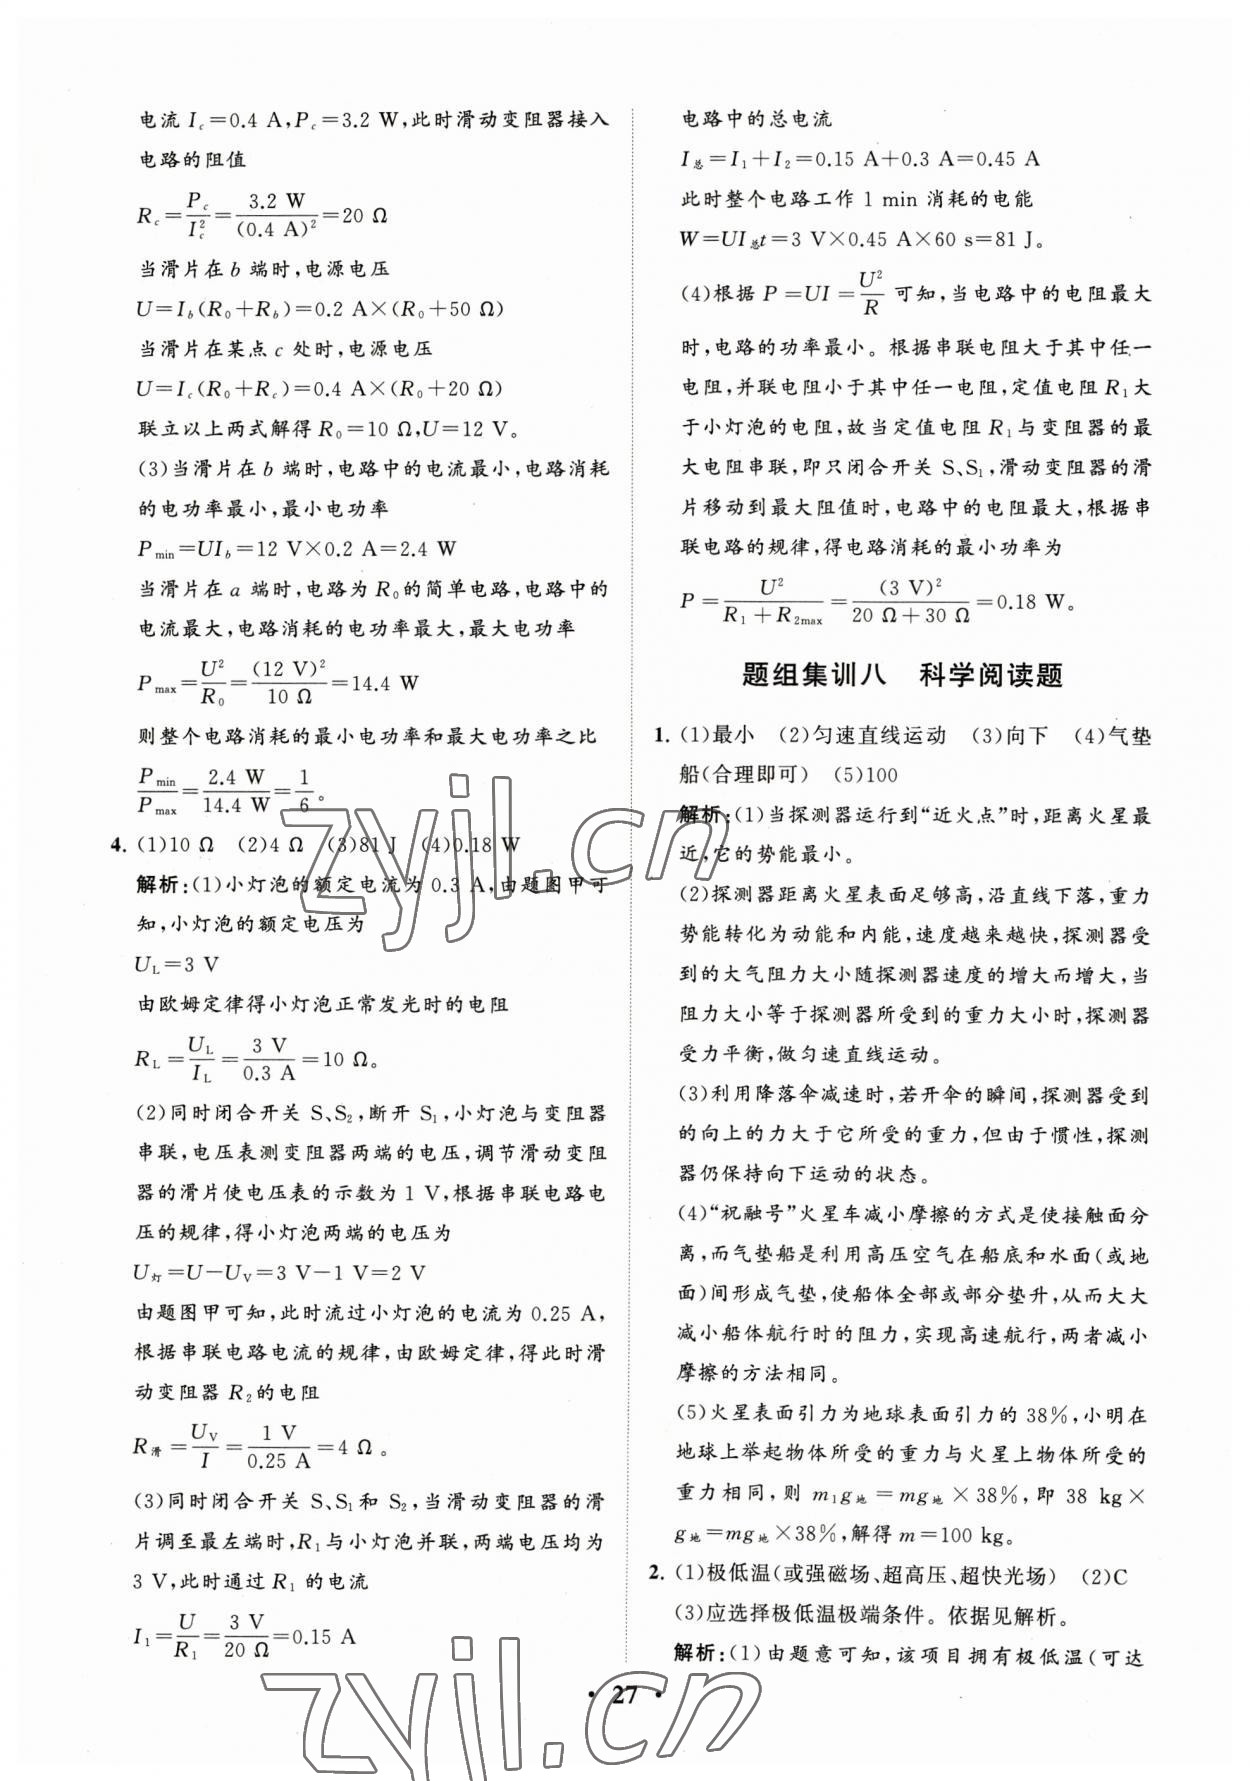 电流 I_c=0.4 A,P_c=3.2 W,此时滑动变阻器接入
电路的阻值
R_c=P_c/I_c²=3.2 W/(0.4 A)²=20 Ω
当滑片在 b 端时,电源电压
U=I_b(R₀+R_b)=0.2 A×(R₀+50 Ω)
当滑片在某点 c 处时,电源电压
U=I_c(R₀+R_c)=0.4 A×(R₀+20 Ω)
联立以上两式解得 R₀=10 Ω,U=12 V。
(3)当滑片在 b 端时,电路中的电流最小,电路消耗
的电功率最小,最小电功率
P_min=UI_b=12 V×0.2 A=2.4 W
当滑片在 a 端时,电路为 R₀的简单电路,电路中的
电流最大,电路消耗的电功率最大,最大电功率
P_max=U²/R₀=(12 V)²/10 Ω=14.4 W
则整个电路消耗的最小电功率和最大电功率之比
P_min/P_max=2.4 W/14.4 W=1/6。
4. (1)10 Ω (2)4 Ω (3)81 J (4)0.18 W
解析:(1)小灯泡的额定电流为 0.3 A,由题图甲可
知,小灯泡的额定电压为
U_L=3 V
由欧姆定律得小灯泡正常发光时的电阻
R_L=U_L/I_L=3 V/0.3 A=10 Ω。
(2)同时闭合开关 S、S₂,断开 S₁,小灯泡与变阻器
串联,电压表测变阻器两端的电压,调节滑动变阻
器的滑片使电压表的示数为 1 V,根据串联电路电
压的规律,得小灯泡两端的电压为
U_灯=U-U_V=3 V-1 V=2 V
由题图甲可知,此时流过小灯泡的电流为 0.25 A,
根据串联电路电流的规律,由欧姆定律,得此时滑
动变阻器 R₂的电阻
R_滑=U_V/I=1 V/0.25 A=4 Ω。
(3)同时闭合开关 S、S₁和 S₂,当滑动变阻器的滑
片调至最左端时,R₁与小灯泡并联,两端电压均为
3 V,此时通过 R₁ 的电流
I₁=U/R₁=3 V/20 Ω=0.15 A
电路中的总电流
I_总=I₁+I₂=0.15 A+0.3 A=0.45 A
此时整个电路工作 1 min 消耗的电能
W=UI_总t=3 V×0.45 A×60 s=81 J。
(4)根据 P=UI=U²/R 可知,当电路中的电阻最大
时,电路的功率最小。根据串联电阻大于其中任一
电阻,并联电阻小于其中任一电阻,定值电阻 R₁大
于小灯泡的电阻,故当定值电阻 R₁与变阻器的最
大电阻串联,即只闭合开关 S、S₁,滑动变阻器的滑
片移动到最大阻值时,电路中的电阻最大,根据串
联电路的规律,得电路消耗的最小功率为
P=U²/(R₁+R_2max)=(3 V)²/(20 Ω+30 Ω)=0.18 W。
题组集训八 科学阅读题
1. (1)最小 (2)匀速直线运动 (3)向下 (4)气垫
船(合理即可) (5)100
解析:(1)当探测器运行到“近火点”时,距离火星最
近,它的势能最小。
(2)探测器距离火星表面足够高,沿直线下落,重力
势能转化为动能和内能,速度越来越快,探测器受
到的大气阻力大小随探测器速度的增大而增大,当
阻力大小等于探测器所受到的重力大小时,探测器
受力平衡,做匀速直线运动。
(3)利用降落伞减速时,若开伞的瞬间,探测器受到
的向上的力大于它所受的重力,但由于惯性,探测
器仍保持向下运动的状态。
(4)“祝融号”火星车减小摩擦的方式是使接触面分
离,而气垫船是利用高压空气在船底和水面(或地
面)间形成气垫,使船体全部或部分垫升,从而大大
减小船体航行时的阻力,实现高速航行,两者减小
摩擦的方法相同。
(5)火星表面引力为地球表面引力的 38%,小明在
地球上举起物体所受的重力与火星上物体所受的
重力相同,则 m₁g_地=mg_地×38%,即 38 kg×
g_地=mg_地×38%,解得 m=100 kg。
2. (1)极低温(或强磁场、超高压、超快光场) (2)C
(3)应选择极低温极端条件。依据见解析。
解析:(1)由题意可知,该项目拥有极低温(可达
• 27 •
zyjl.cn
zyjl.cn